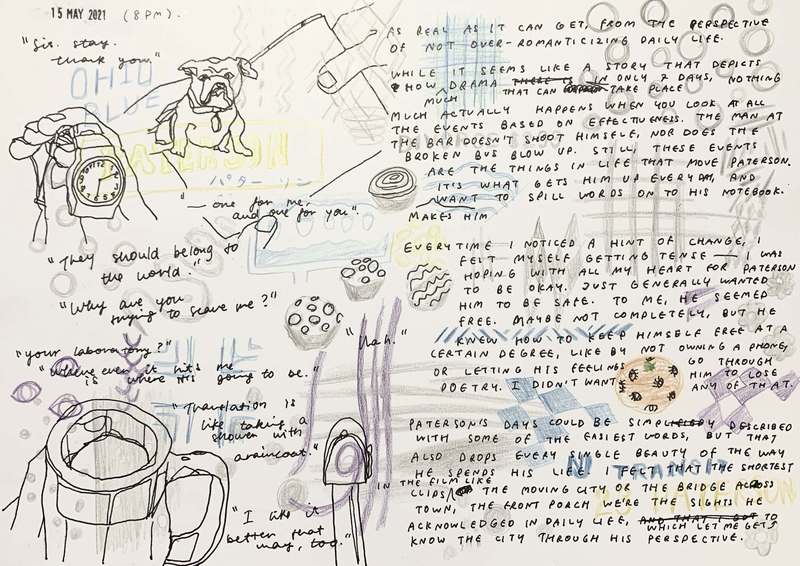 15 MAY 2021 (8PM).
"Sir. stay.
thank you."
OHIO
BLUE
PATERSON
パターソン
"— one for me,
and one for you".
"They should belong to
the world."
"Why are you
trying to scare me?"
"your laboratory?"
"where even it hits me
is where it's going to be."
"Translation is
like taking a
shower with
a raincoat."
"I like it
better that
way, too."
"Hah."
AS REAL AS IT CAN GET, FROM THE PERSPECTIVE
OF NOT OVER-ROMANTICIZING DAILY LIFE.
WHILE IT SEEMS LIKE A STORY THAT DEPICTS
HOW MUCH DRAMA THAT CAN TAKE PLACE IN ONLY 7 DAYS, NOTHING
MUCH ACTUALLY HAPPENS WHEN YOU LOOK AT ALL
THE EVENTS BASED ON EFFECTIVENESS. THE MAN AT
THE BAR DOESN'T SHOOT HIMSELF, NOR DOES THE
BROKEN BUS BLOW UP. STILL, THESE EVENTS
ARE THE THINGS IN LIFE THAT MOVE PATERSON.
IT'S WHAT GETS HIM UP EVERYDAY, AND
MAKES HIM WANT TO SPILL WORDS ON TO HIS NOTEBOOK.
EVERYTIME I NOTICED A HINT OF CHANGE, I
FELT MYSELF GETTING TENSE — I WAS
HOPING WITH ALL MY HEART FOR PATERSON
TO BE OKAY. JUST GENERALLY WANTED
HIM TO BE SAFE. TO ME, HE SEEMED
FREE. MAYBE NOT COMPLETELY, BUT HE
KNEW HOW TO KEEP HIMSELF FREE AT A
CERTAIN DEGREE, LIKE BY NOT OWNING A PHONE,
OR LETTING HIS FEELINGS GO THROUGH
POETRY. I DIDN'T WANT HIM TO LOSE
ANY OF THAT.
PATERSON'S DAYS COULD BE SIMPLY DESCRIBED
WITH SOME OF THE EASIEST WORDS, BUT THAT
ALSO DROPS EVERY SINGLE BEAUTY OF THE WAY
HE SPENDS HIS LIFE. I FELT THAT THE SHORTEST
CLIPS IN THE FILM LIKE THE MOVING CITY OR THE BRIDGE ACROSS
TOWN, THE FRONT PORCH WE'RE THE SIGHTS HE
ACKNOWLEDGED IN DAILY LIFE, WHICH LET ME GETS TO
KNOW THE CITY THROUGH HIS PERSPECTIVE.
NJ TRANSIT
23 PATERSON